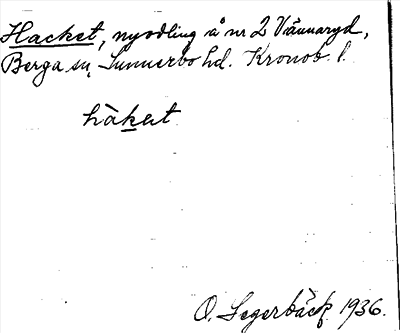 Hacket, nyodling å nr 2 Vännaryd,
Berga sn, Sunnerbo hd. Kronob. l.
hàket
O. Segerbäck 1936.